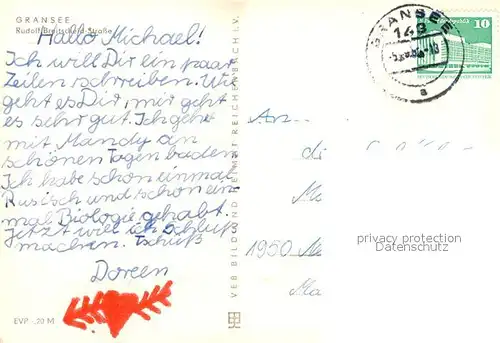 GRANSEE
Rudolf-Breitscheid-Straße
Hallo Michael!
Ich will Dir ein paar
Zeilen schreiben. Wie
geht es Dir, mir geht
es sehr gut. Ich gehe
mit Mandy an
schönen Tagen baden.
Ich habe schon einmal
Rusisch und schon ein-
mal Biologie gehabt.
Jetzt will ich Schluß
machen. Tschüß
Doreen
EVP -,20 M
VEB BILD UND HEIMAT REICHENBACH I. V.
GRANSEE
143
a
10
An
di
1950
privacy protection
Datenschutz